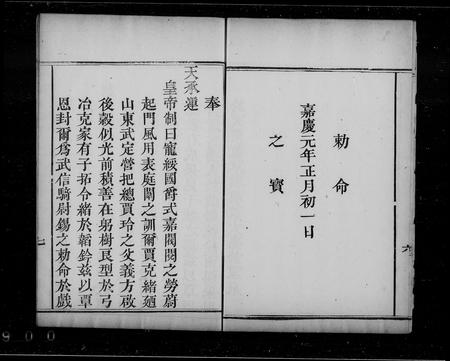 勅命
嘉慶元年正月初一日
之寳
六
奉
天承運
皇帝制曰寵綏國爵式嘉閥閱之勞蔚
起門風用表庭闈之訓爾賈克緒廼
山東武定營把總賈玲之父義方啟
後穀似光前積善在躬樹良型於弓
冶克家有子拓令緒於韜鈐兹以覃
恩封爾爲武信騎尉錫之勅命於戲
900